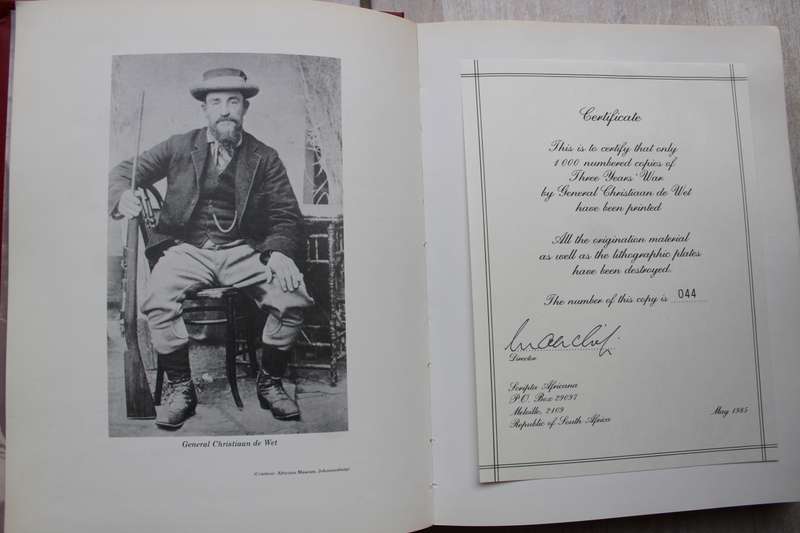 General Christiaan de Wet
Africana Museum, Johannesburg)
Certificate
This is to certify that only
1 000 numbered copies of
Three Years' War
by General Christiaan de Wet
have been printed
All the origination material
as well as the lithographic plates
have been destroyed.
The number of this copy is 044
Director
Scripta Africana
P.O. Box 29097
Melville, 2109
Republic of South Africa
May 1985